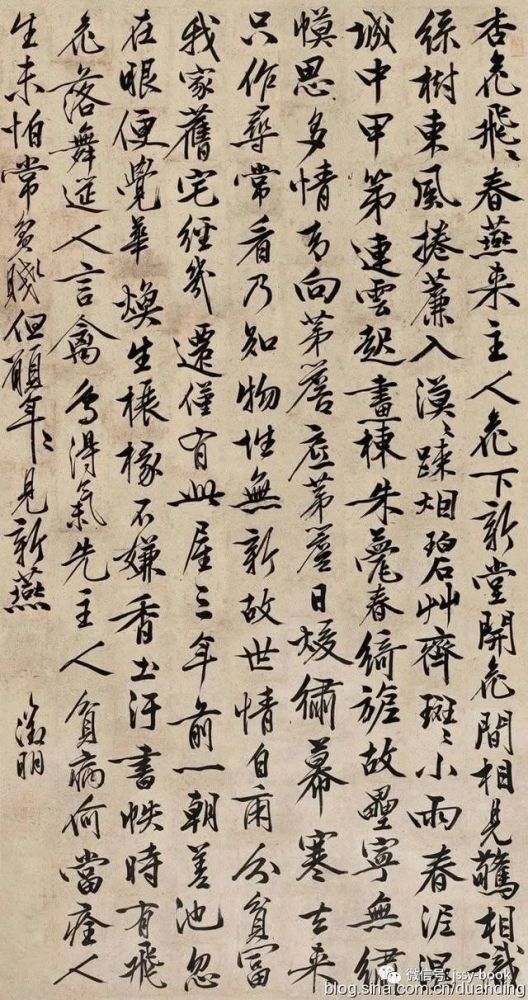 杏花飛〻春燕来主人花下新堂開花間相見驚相識
綵樹東風捲簾入漠〻疎烟碧艸齊斑〻小雨春泥濕
城中甲第連雲起畫棟朱甍春綺旎故壘寧無繡
幙思多情向茅簷庇茅簷日煖繡幕寒去来
只作尋常看乃知物性無新故世情自爾分貧富
我家舊宅經幾遷僅有此屋三年前一朝差池忽
在眼便覺華煥生榱椽不嫌香土汙書帙時有飛
花落舞筵人言禽鳥得氣先主人貧病何當痊人
生未怕常貧賤但願年〻見新燕
徵明
微信号: jssy-book
blog.sina.com.cn/duanding